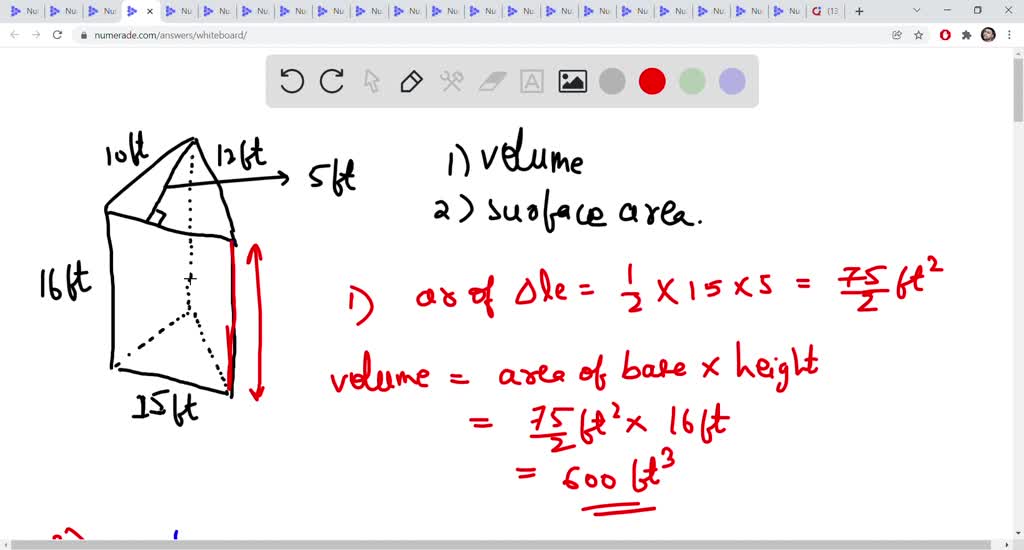 Nu Nu Nu Nu Nu Nu Nu Nu Nu Nu Nu Nu Nu Nu Nu Nu Nu Nu Nu Nu (13
numerade.com/answers/whiteboard/
A
10ft 12ft
5ft
16ft
15ft
1) volume
2) surface area.
1) ar of Δle = 1/2 × 15 × 5 = 75/2 ft²
volume = area of base × height
= 75/2 ft² × 16ft
= 600 ft³